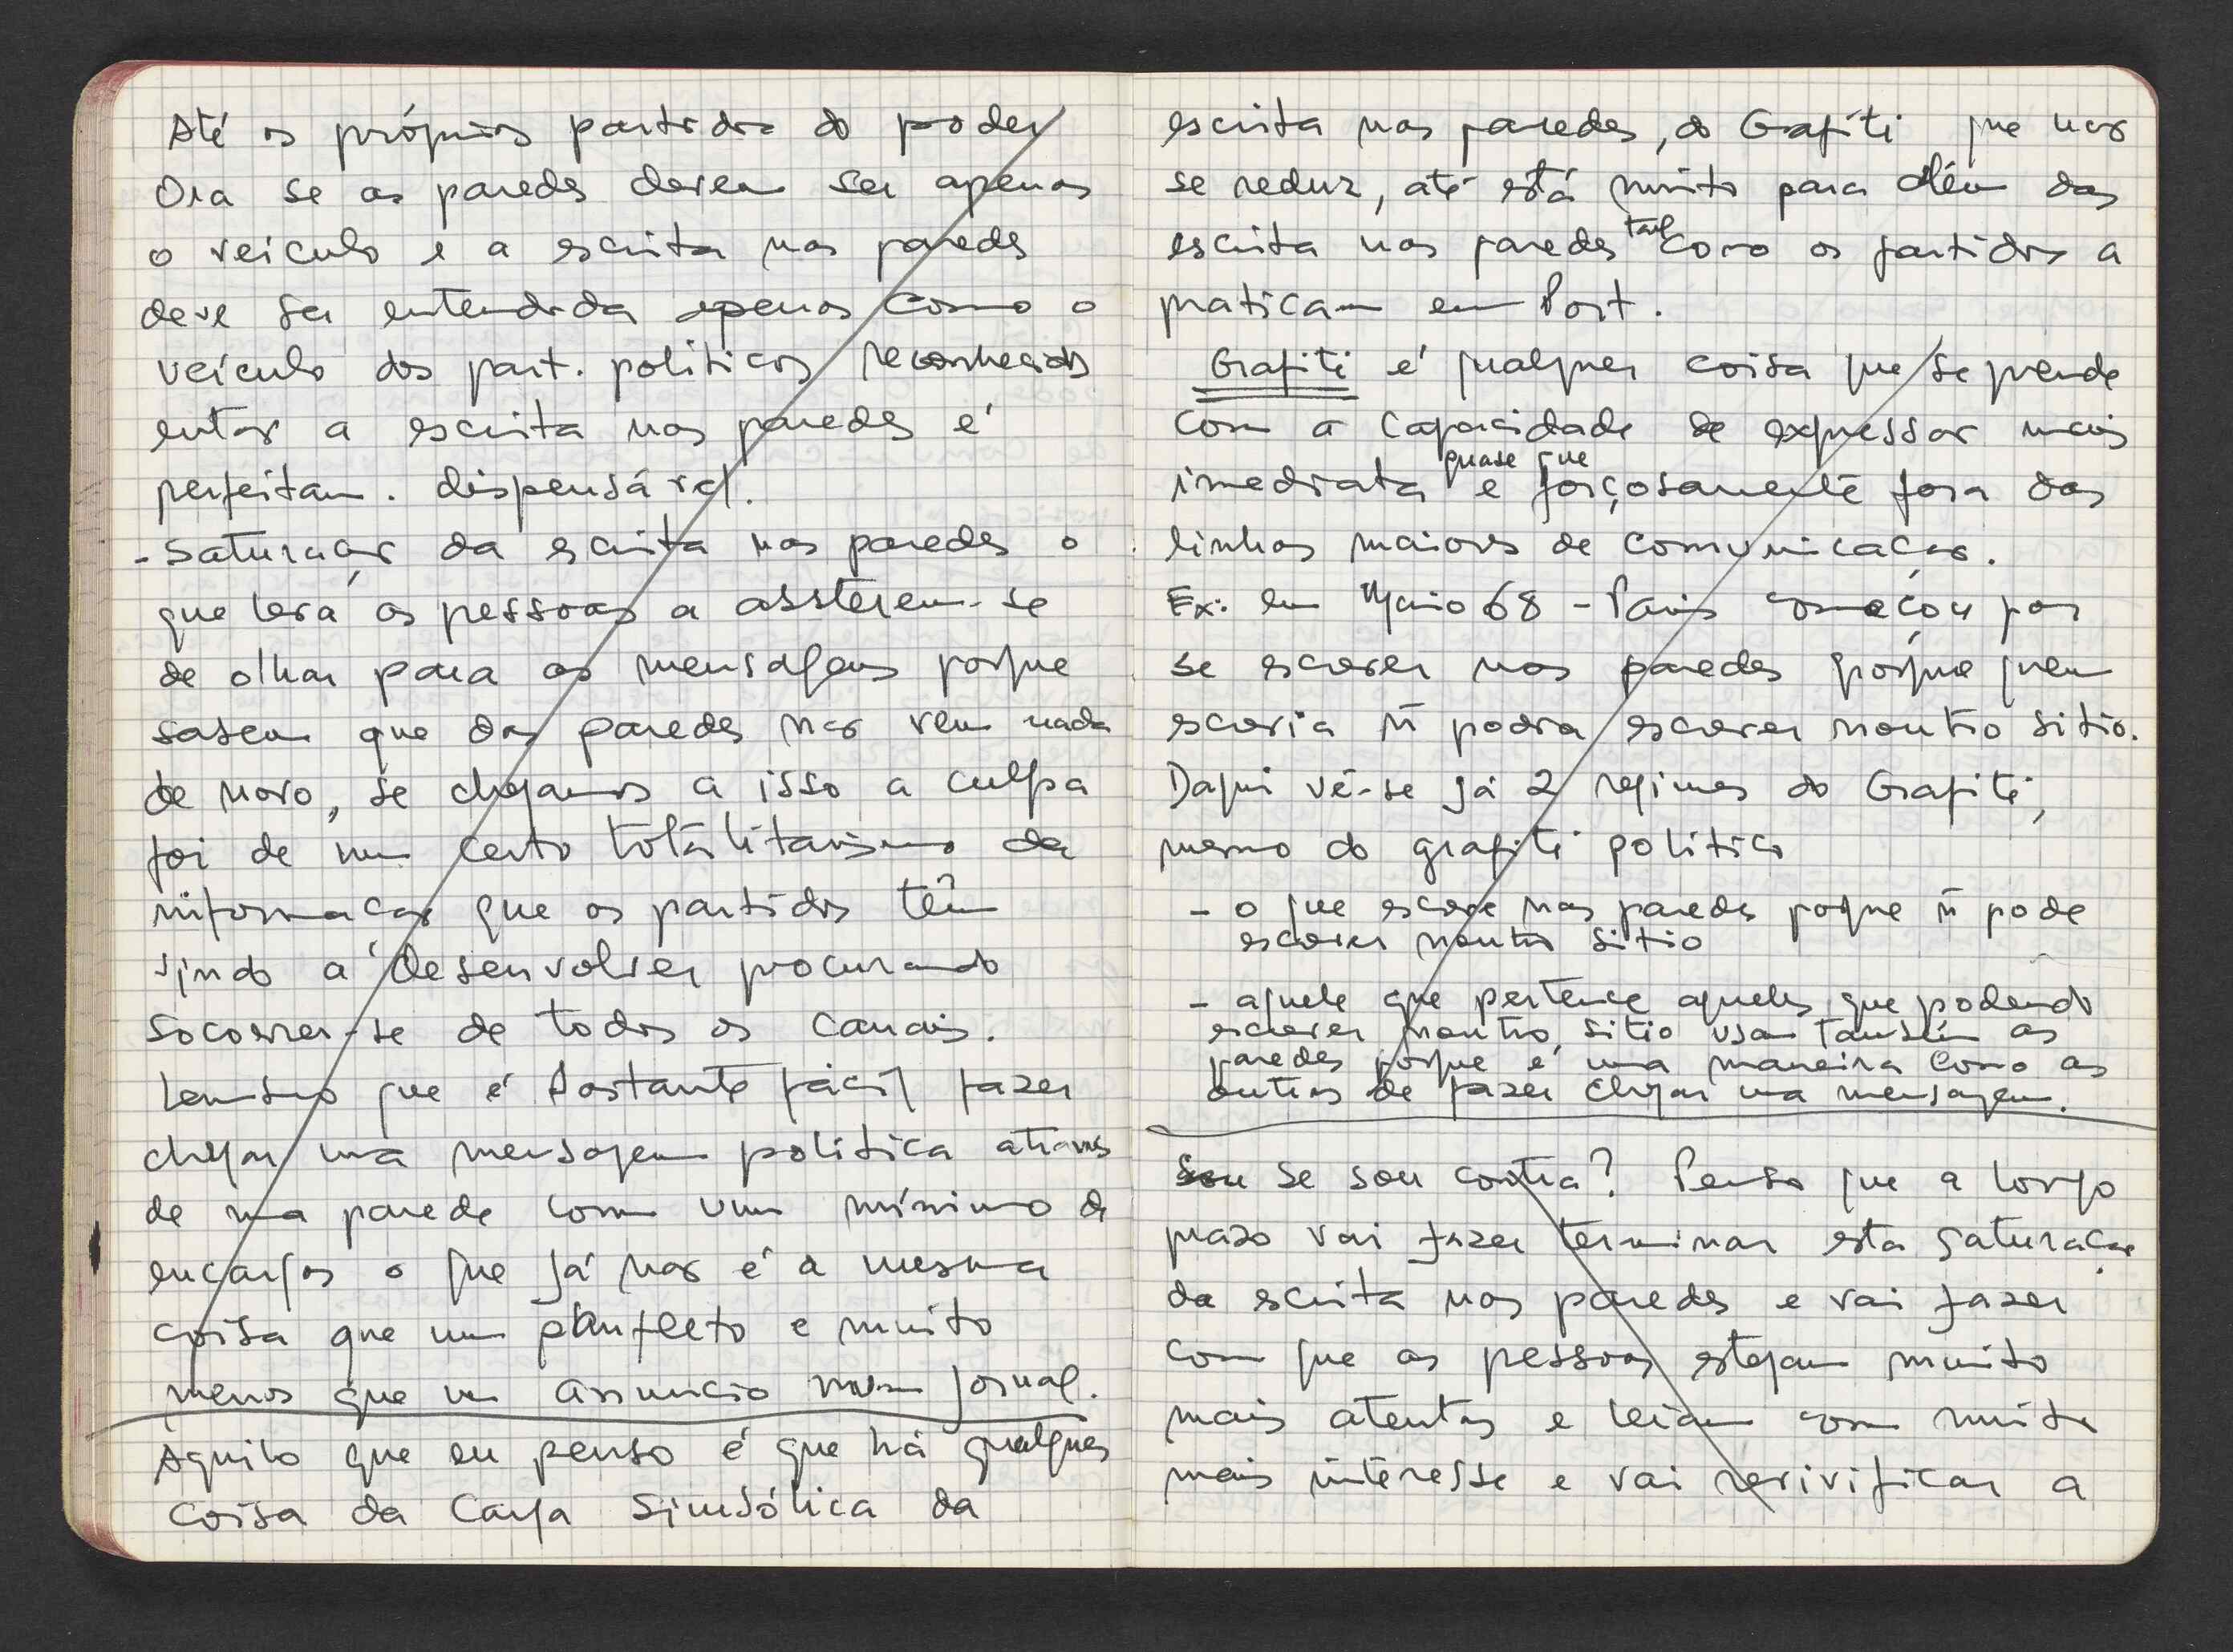 Até os próprios partidos do poder
Ora se as paredes devem ser apenas
o veículo e a escrita nas paredes
deve ser entendida apenas como o
veículo dos part. politicos reconhecidos
entao a escrita nas paredes é
perfeitam. dispensável.
- Saturação da escrita nas paredes o
que leva as pessoas a absterem-se
de olhar para as mensagens porque
sabem que das paredes nao vem nada
de novo, se chegamos a isso a culpa
foi de um certo totalitarismo da
informaçao que os partidos têm
vindo a desenvolver procurando
socorrer-se de todos os canais.
Lembro que é bastante fácil fazer
chegar uma mensagem politica atraves
de uma parede com um mínimo de
encargos o que já nao é a mesma
coisa que um panfleto e muito
menos que um anuncio num jornal.
Aquilo que eu penso é que há qualquer
coisa da carga simbólica da
escrita nas paredes, do Grafiti que nao
se reduz, até está muito para além das
escrita nas paredes tal como os partidos a
praticam em Port.
Grafiti é qualquer coisa que se prende
com a capacidade de expressar mais
imediata e quase que forçosamente fora das
linhas maiores de comunicaçao.
Ex: em Maio 68 - Paris começou por
se escrever nas paredes porque quem
escrevia ñ podia escrever noutro sitio.
Daqui vê-se já 2 regimes do Grafiti,
mesmo do grafiti politico
- o que escreve nas paredes porque ñ pode
escrever noutro sitio
- aquele que pertence aqueles que podendo
escrever noutro sitio usam também as
paredes porque é uma maneira como as
outras de fazer chegar uma mensagem.
Sou Se sou contra? Penso que a longo
prazo vai fazer terminar esta saturaçao
da escrita nas paredes e vai fazer
com que as pessoas estejam muito
mais atentas e leiam com muito
mais interesse e vai revivificar a